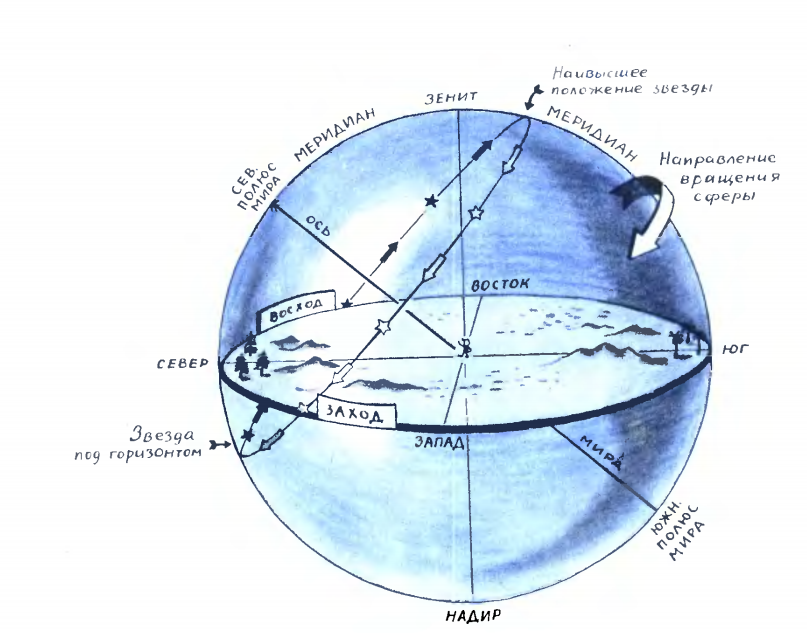 Наивысшее
положение звезды
ЗЕНИТ
МЕРИДИАН
МЕРИДИАН
Направление
вращения
сферы
СЕВ.
ПОЛЮС
МИРА
ОСЬ
ВОСТОК
ВОСХОД
СЕВЕР
ЮГ
ЗАХОД
Звезда
под горизонтом
ЗАПАД
МИРА
ЮЖН.
ПОЛЮС
МИРА
НАДИР